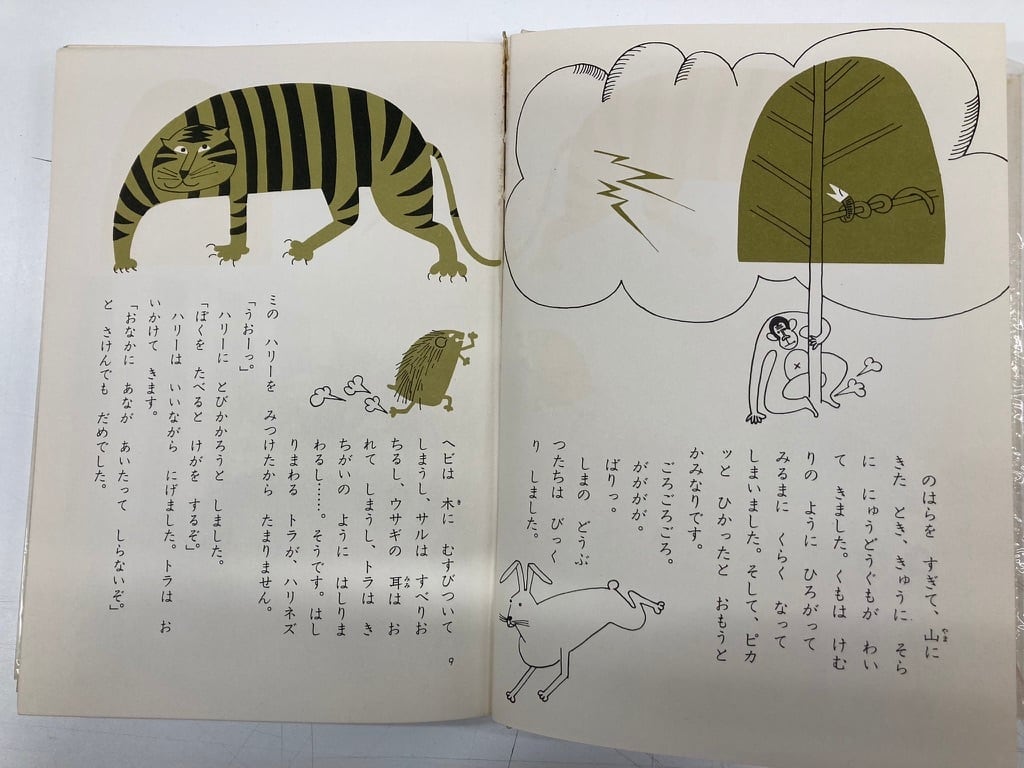 のはらを すぎて、山に
やま
きた とき、きゅうに そら
に にゅうどうぐもが わい
て きました。くもは けむ
りの ように ひろがって
みるまに くらく なって
しまいました。そして、ピカ
ッと ひかったと おもうと
かみなりです。
ごろごろごろ。
がががが。
ばりっ。
しまの どうぶ
つたちは びっく
り しました。
ヘビは 木に むすびついて
き
しまうし、サルは すべりお
ちるし、ウサギの 耳は お
みみ
れて しまうし、トラは き
ちがいの ように はしりま
わるし……。そうです。はし
りまわる トラが、ハリネズ
ミの ハリーを みつけたから たまりません。
「うおーっ。」
ハリーに とびかかろうと しました。
「ぼくを たべると けがを するぞ。」
ハリーは いいながら にげました。トラは お
いかけて きます。
「おなかに あなが あいたって しらないぞ。」
と さけんでも だめでした。
9